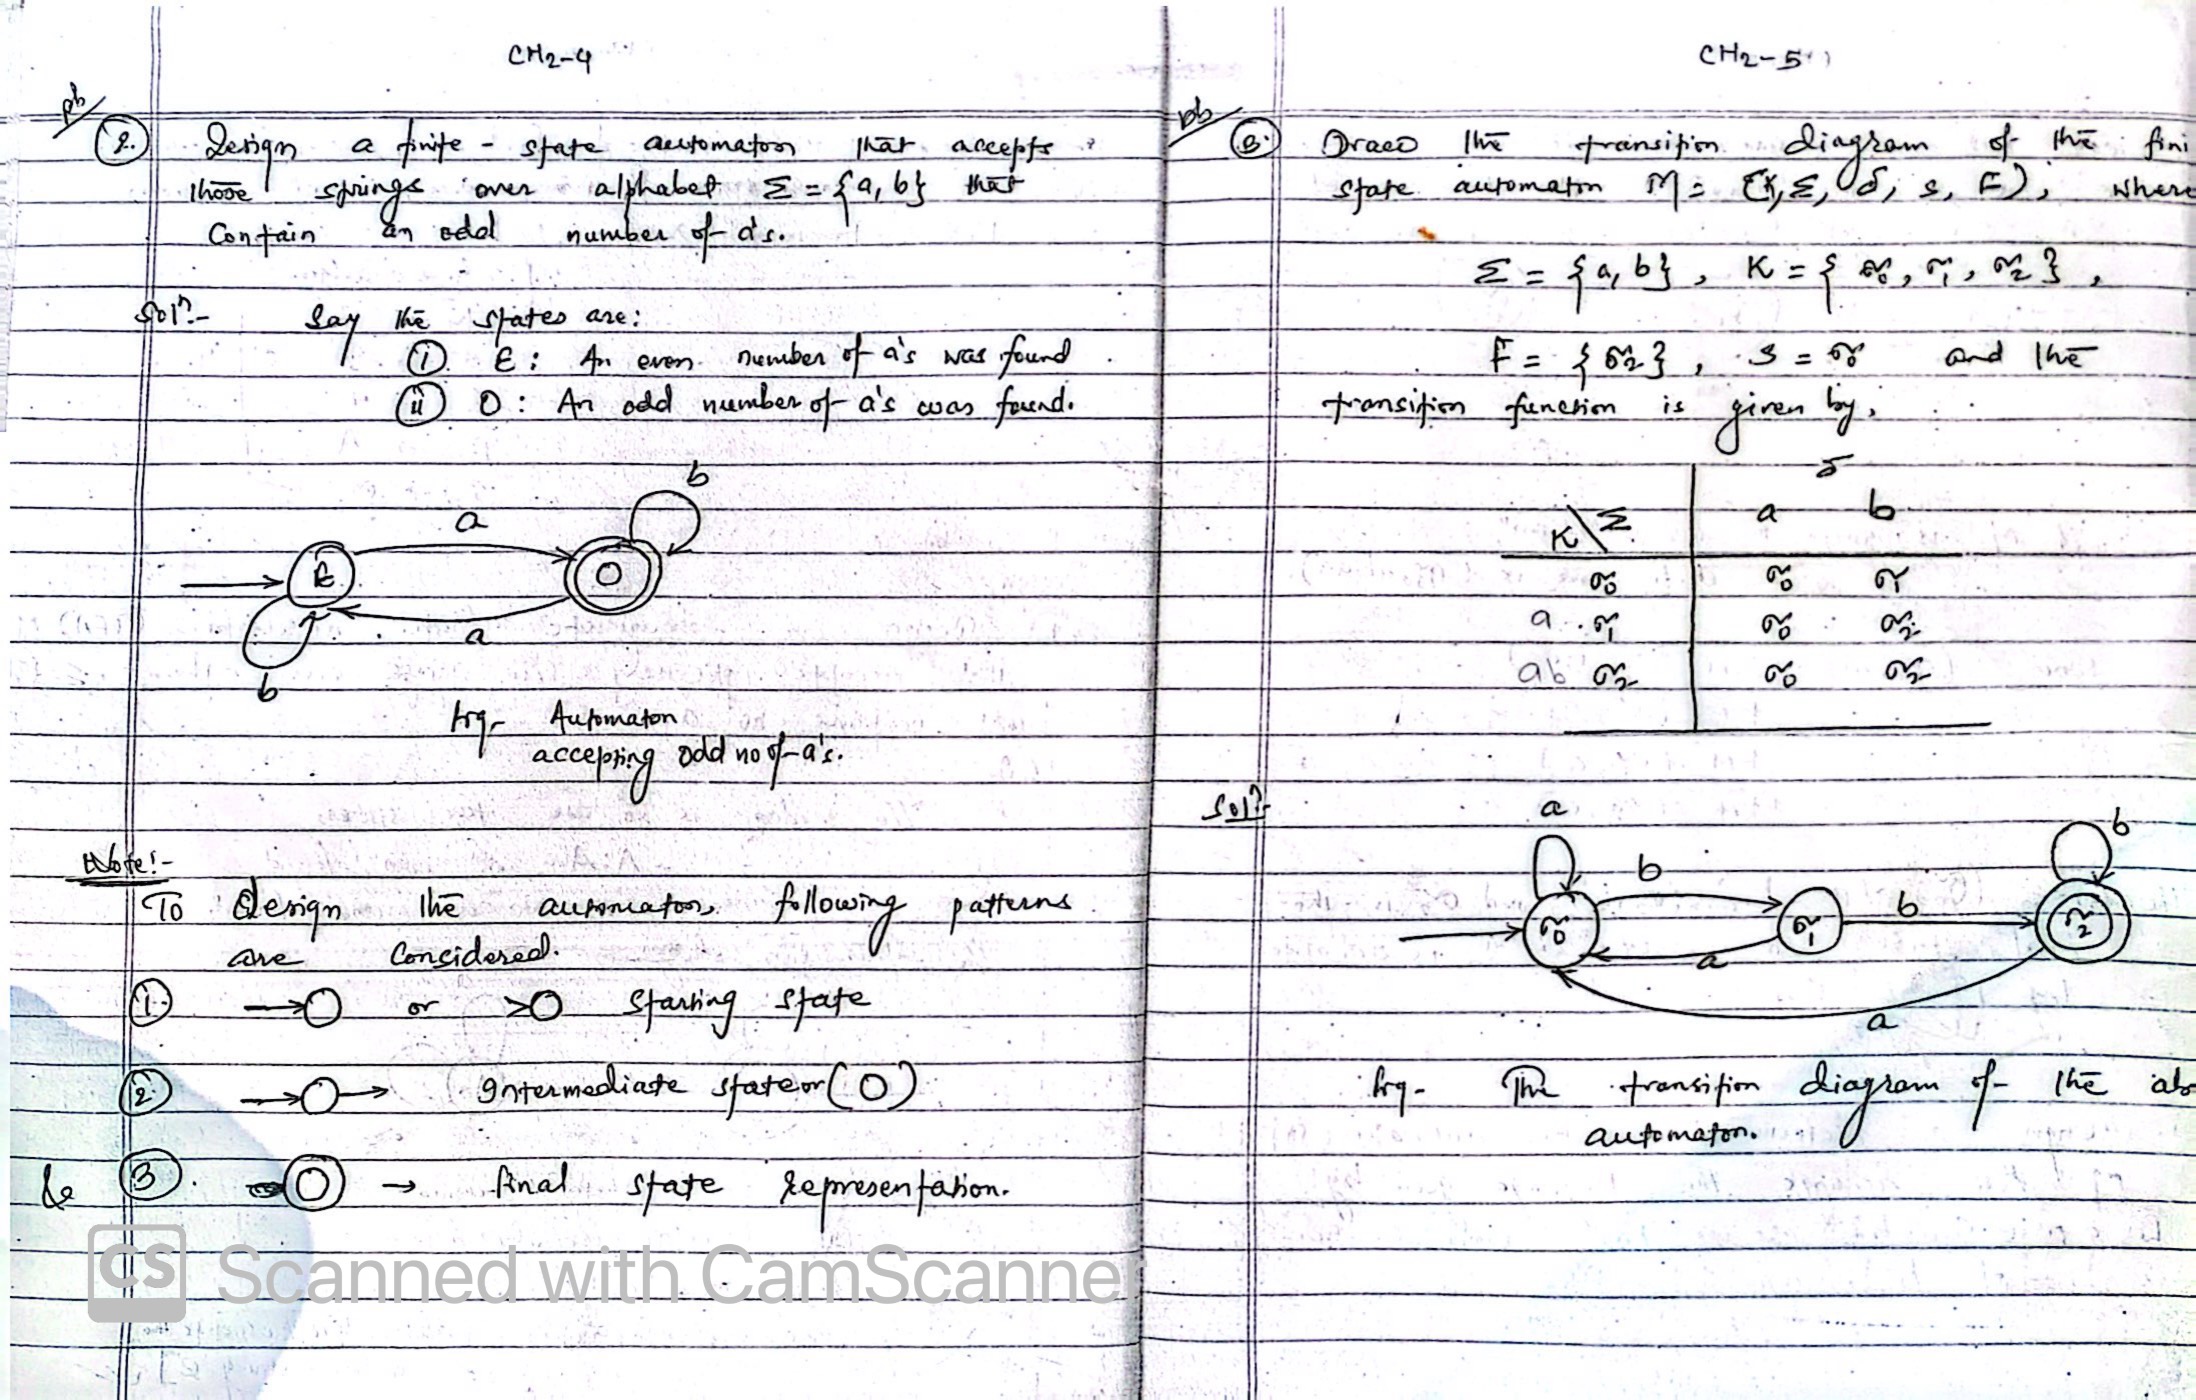 CH2-4
Pb
2. Design a finite-state automaton that accepts
those strings over alphabet Σ = {a, b} that
Contain an odd number of a's.
Solⁿ:-
Say the states are:
(i) E: An even number of a's was found
(ii) O: An odd number of a's was found.
b
a
E
O
a
b
Fig- Automaton
accepting odd no of a's.
Note:-
To design the automaton, following patterns
are considered.
1. or > starting state
2. Intermediate state or ( )
& 3. → final state representation.
CS Scanned with CamScanner
CH2-5
Pb
3. Draw the transition diagram of the fini
state automaton M = (K, Σ, δ, s, F), where
Σ = {a, b}, K = {σ₀, σ₁, σ₂},
F = {σ₂}, S = σ₀ and the
transition function is given by,
δ
K\Σ a b
σ₀ σ₀ σ₁
a σ₁ σ₀ σ₂
ab σ₂ σ₀ σ₂
Solⁿ:-
a
b
b
b
σ₀
σ₁
σ₂
a
a
Fig- The transition diagram of the abo
automaton.